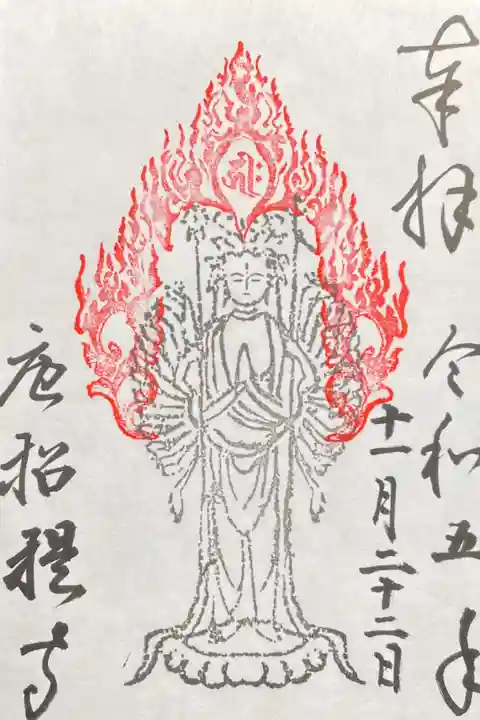 奉拝
令和五年
十一月二十二日
唐招提寺